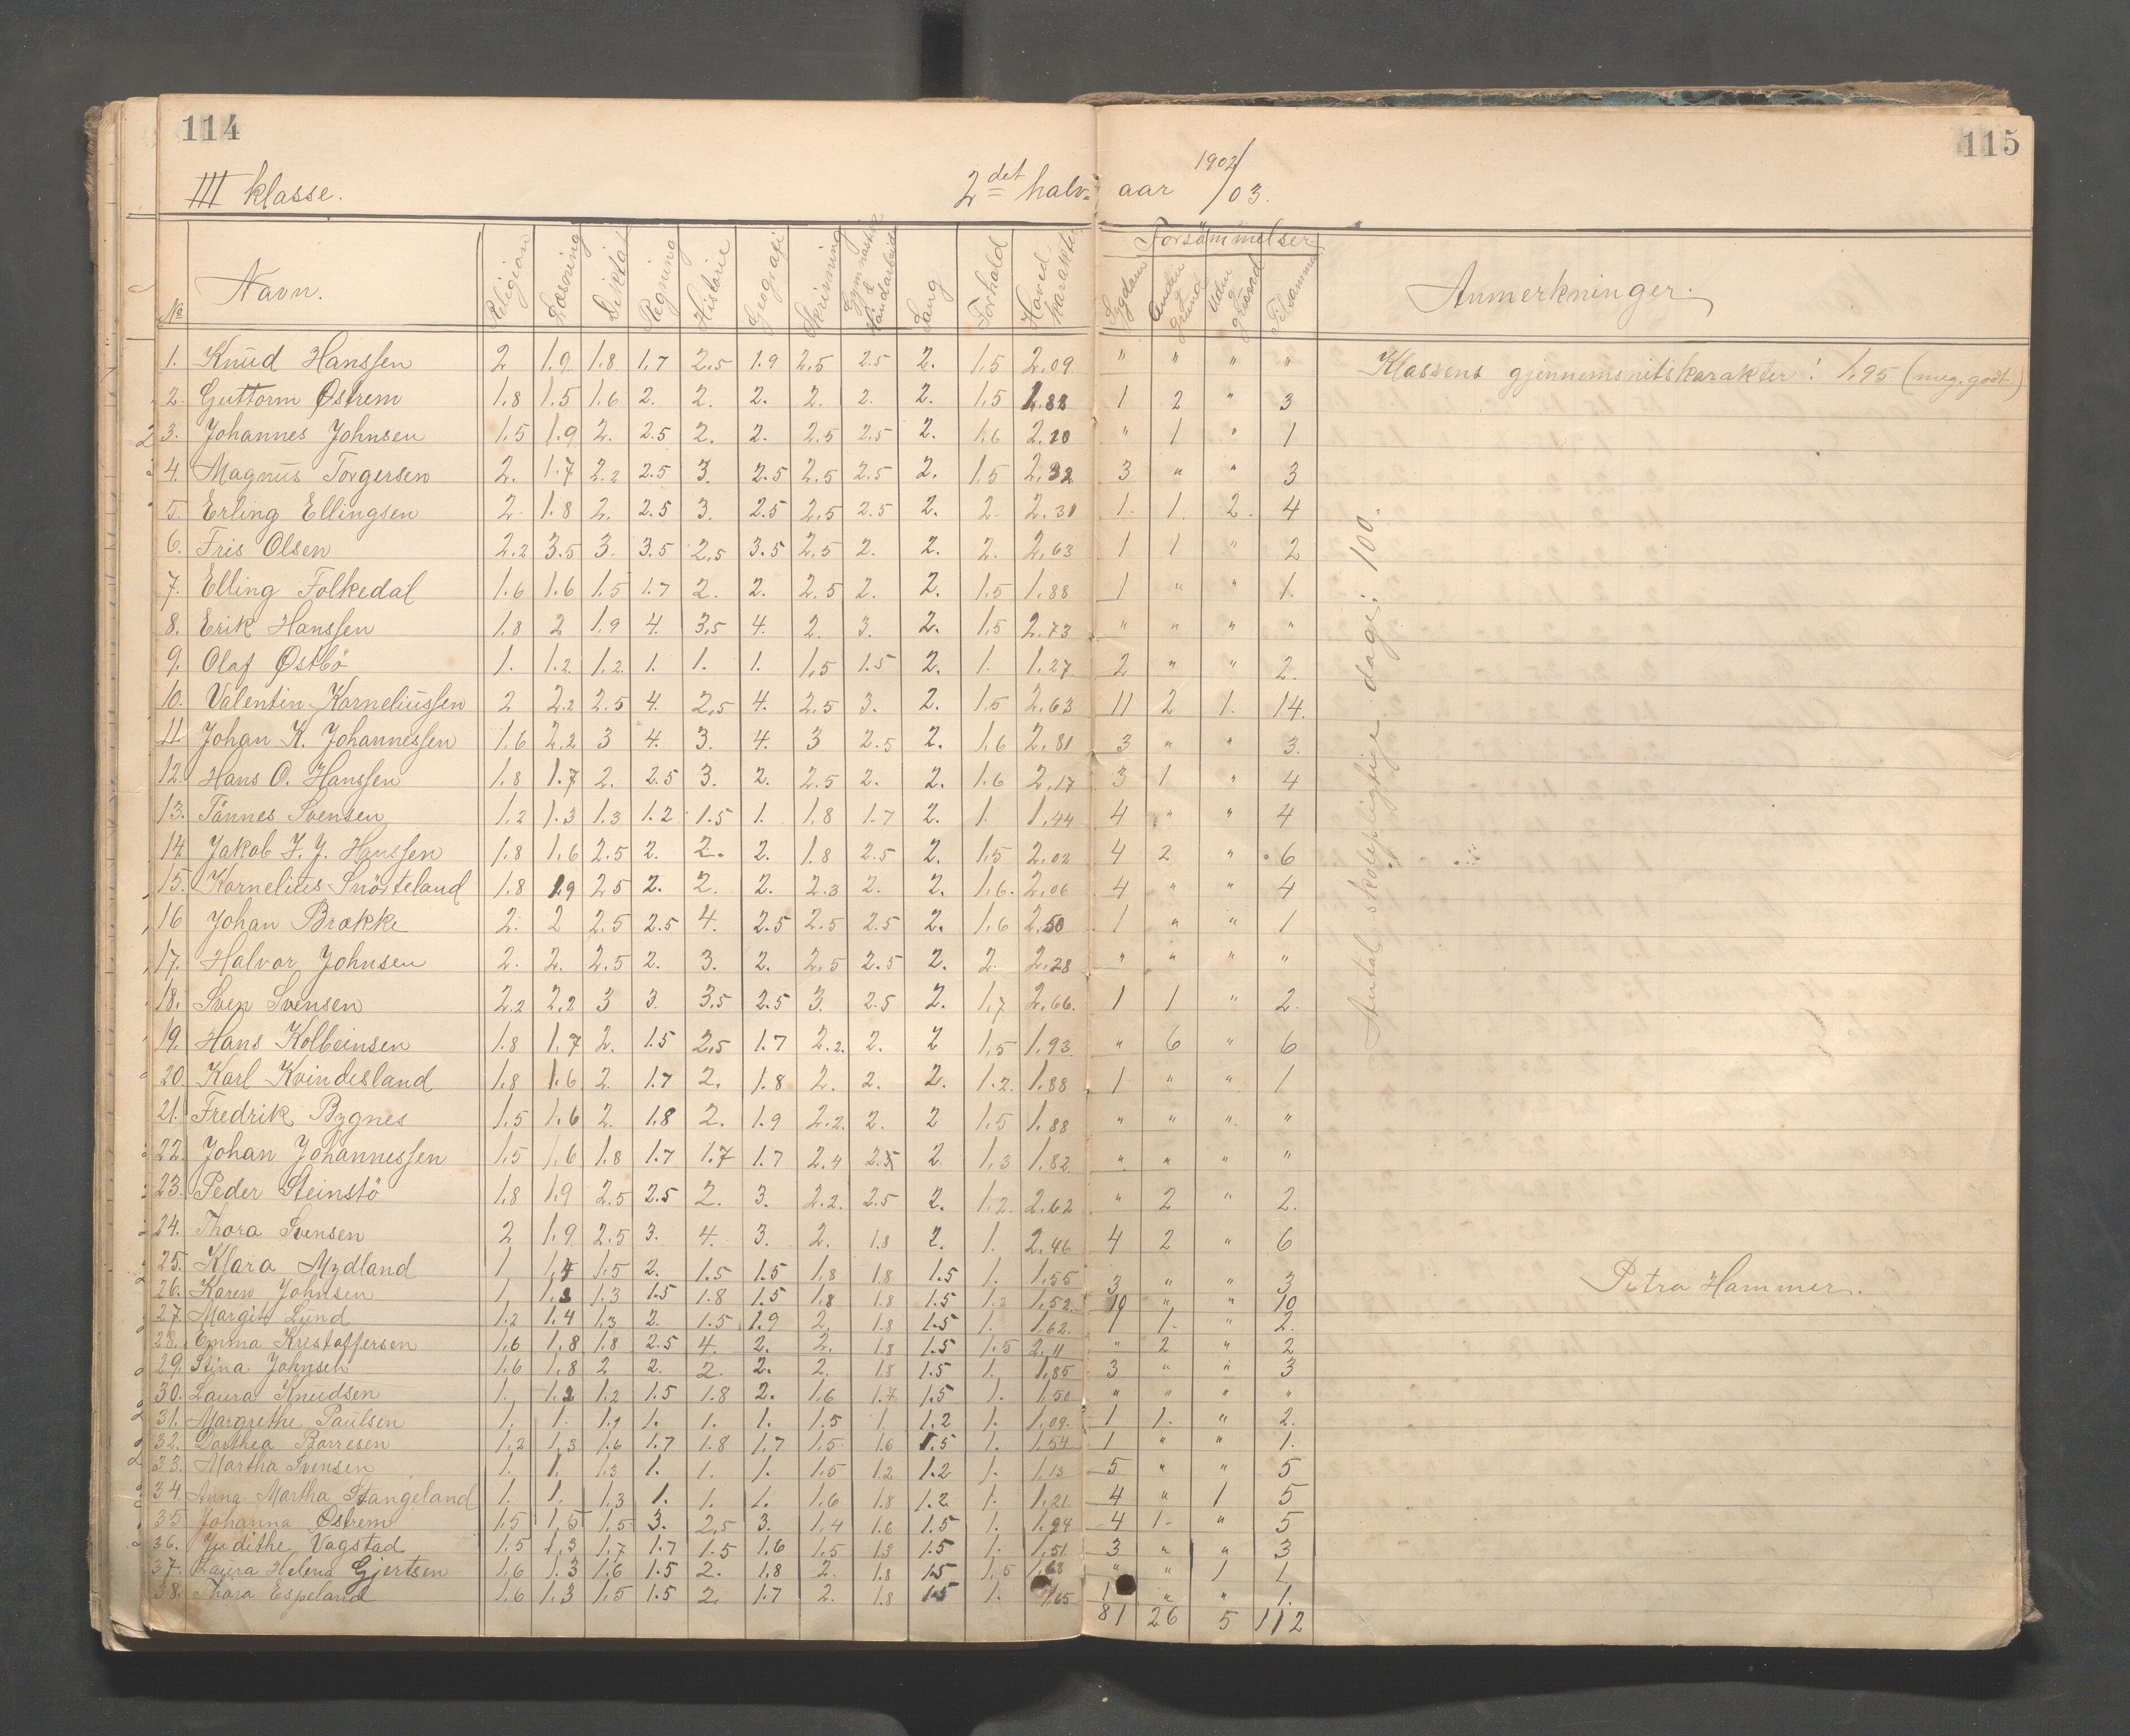 114
115
III klasse.
2det halv= aar 1902/03.
№ Navn. Religion Læsning Diktat Regning Historie Geografi Skrivning Gymnastik & Haandarbeide Sang Forhold Hoved karakter Forsömmelser. Sygdom Anden grund Uden grund Tilsammen Anmerkninger.
1. Knud Hanssen 2 1.9 1.8 1.7 2.5 1.9 2.5 2.5 2. 1.5 2.09 " " " " Klassens gjennemsnitskarakter: 1,95 (meg. godt.)
2. Guttorm Østrem 1.8 1.5 1.6 2. 2. 2. 2. 2. 2. 1.5 1.88 1 2 " 3
3. Johannes Johnsen 1.5 1.9 2. 2.5 2. 2. 2.5 2.5 2. 1.6 2.20 " 1 " 1
4. Magnus Torgersen 2. 1.7 2.2 2.5 3. 2.5 2.5 2.5 2. 1.5 2.32 3 " " 3
5. Erling Ellingsen 2. 1.8 2. 2.5 3. 2.5 2.5 2.5 2. 2. 2.31 1. 1. 2. 4
6. Fris Olsen 2.2 3.5 3. 3.5 2.5 3.5 2.5 2. 2. 2. 2.63 1 1 " 2
7. Elling Folkedal 1.6 1.6 1.5 1.7 2. 2. 2.5 2. 2. 1.5 1.88 1 " " 1.
8. Erik Hanssen 1.8 2 1.9 4. 3.5 4. 2. 3. 2. 1.5 2.73 " " " "
9. Olaf Østbö 1. 1.2 1.2 1. 1. 1. 1.5 1.5 2. 1. 1.27 2 " " 2.
10. Valentin Korneliussen 2 2.2 2.5 4. 2.5 4. 2.5 3. 2. 1.5 2.63 11 2 1. 14.
11. Johan K. Johannessen 1.6 2.2 3 4. 3. 4. 3 2.5 2. 1.6 2.81 3 " " 3.
12. Hans O. Hanssen 1.8 1.7 2. 2.5 3. 2. 2.5 2. 2. 1.6 2.17 3 1 " 4
13. Tönnes Svensen 1.2 1.3 1.3 1.2 1.5 1. 1.8 1.7 2. 1. 1.44 4 " " 4
14. Jakob J. J. Hanssen 1.8 1.6 2.5 2. 2. 2. 1.8 2.5 2. 1.5 2.02 4 2 " 6
15. Kornelius Snörteland 1.8 1.9 2.5 2. 2. 2. 2.3 2. 2. 1.6. 2.06 4 " " 4
16 Johan Brække 2. 2 2.5 2.5 4. 2.5 2.5 2.5 2. 1.6 2.50 1 " " 1
17. Halvor Johnsen 2. 2. 2.5 2. 3. 2. 2.5 2.5 2. 2. 2.28 " " " "
18. Sven Svensen 2.2 2.2 3 3. 3.5 2.5 3. 2.5 2. 1.7 2.66. 1 1 " 2.
19. Hans Kolbeinsen 1.8 1.7 2. 1.5 2.5 1.7 2.2. 2. 2 1.5 1.93. " 6 " 6
20. Karl Kvindesland 1.8 1.6 2. 1.7 2. 1.8 2. 2. 2. 1.2. 1.88 1 " " 1
21. Fredrik Bygnes 1.5 1.6 2. 1.8 2. 1.9 2.2. 2. 2 1.5 1.88 " " " "
22. Johan Johannessen 1.5 1.6 1.8 1.7 1.7 1.7 2.4 2.5 2 1.3 1.82. " " " "
23. Peder Steinstö 1.8 1.9 2.5 2.5 2. 3. 2.2. 2.5 2. 1.2. 2.62 " 2 " 2.
24. Thora Svensen 2 1.9 2.5 3. 4. 3. 2. 1.8 2. 1. 2.46 4 2 " 6
25. Klara Mydland 1 1.4 1.5 2. 1.5 1.5 1.8 1.8 1.5 1. 1.55 3 " " 3
26. Karen Johnsen 1, 1.3 1.3 1.5 1.8 1.5 1.8 1.8 1.5 1.2 1.52. 10 " " 10
27. Margit Lund 1.2 1.4 1.3 2. 1.5 1.9 2. 1.8 1.5 1. 1.62. 1 1. " 2.
28. Emma Kristoffersen 1.6 1.8 1.8 2.5 4. 2. 2. 1.8 1.5 1.5 2.11 " 2 " 2
29. Stina Johnsen 1.6 1.8 2 2. 2. 2. 2. 1.8 1.5 1. 1.85 3 " " 3
30. Laura Knudsen 1. 1.2 1.2 1.5 1.8 2. 1.6 1.7 1.5 1. 1.50 " " " "
31. Margrethe Paulsen 1. 1. 1.1 1. 1. 1. 1.5 1. 1.2 1. 1.09. 1 1. " 2.
32. Dorthea Borresen 1.2 1.3 1.6 1.7 1.8 1.7 1.5 1.6 1.5 1. 1.54 1 " " 1.
33. Martha Svensen 1. 1. 1.3 1. 1. 1. 1.5 1.2 1.2 1. 1.13 5 " " 5
34. Anna Martha Stangeland 1. 1. 1.3 1. 1. 1. 1.6 1.8 1.2 1. 1.21 4 " 1 5
35 Johanna Østrem 1.5 1.5 1.5 3. 2.5 3. 1.4 1.6 1.5 1. 1.94 4 1. " 5
36. Judithe Vagstad 1.5 1.3 1.7 1.7 1.5 1.6 1.5 1.3 1.5 1. 1.51. 3 " " 3
37. Laura Helena Gjertsen 1.6 1.3 1.6 1.5 2. 1.8 2. 1.8 1.5 1.5 1.68 " " 1 1.
38. Thora Espeland 1.6 1.3 1.5 1.5 2. 1.7 2. 1.8 1.5 1. 1.65 1 " " 1.
81 26 5 112
Antal skolepligtige dage: 100.
Petra Hammer.